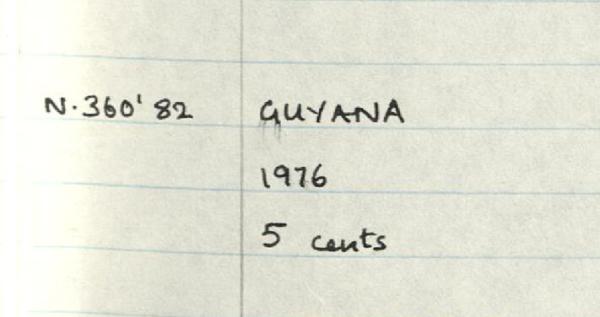 N.360'82 GUYANA
1976
5 cents